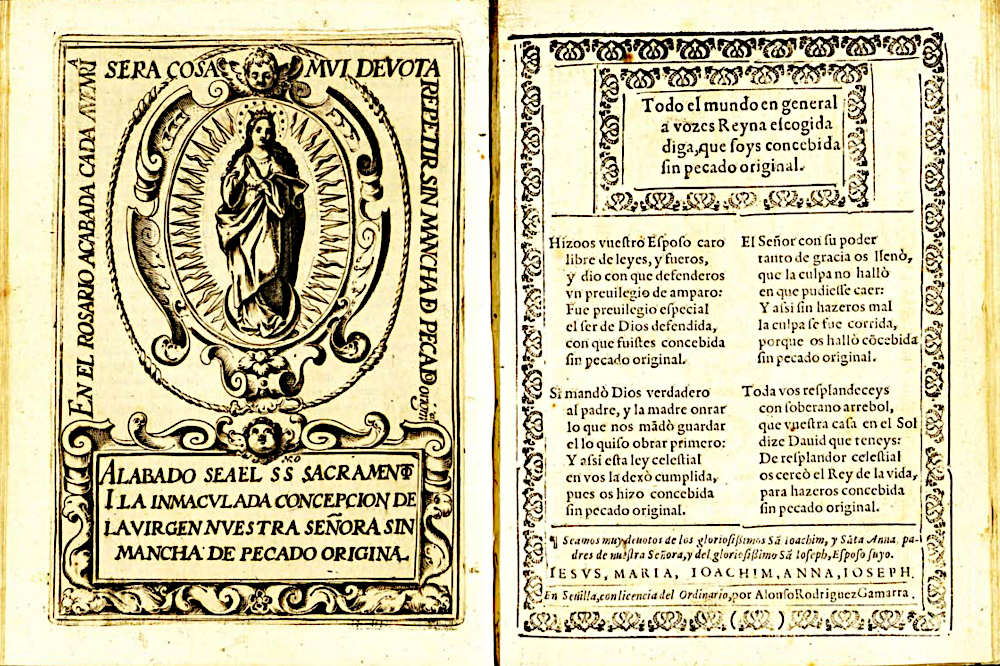 EN EL ROSARIO ACABADA CADA AVEMRÍA
SERA COSA MVI DEVOTA
REPETIR SIN MANCHA D PECADO origin
ALABADO SEA EL S S SACRAMENTO
I LA INMACVLADA CONCEPCION DE
LA VIRGEN NVESTRA SEÑORA SIN
MANCHA DE PECADO ORIGINAL
Todo el mundo en general
a vozes Reyna eſcogida
diga, que ſoys concebida
ſin pecado original.
Hizoos vueſtro Eſpoſo caro
libre de leyes, y fueros,
y dio con que defenderos
vn preuilegio de amparo:
Fue preuilegio eſpecial
el ſer de Dios defendida,
con que fuiſtes concebida
ſin pecado original.
Si mandò Dios verdadero
al padre, y la madre onrar
lo que nos mãdò guardar
el lo quiſo obrar primero:
Y aſsi eſta ley celeſtial
en vos la dexò cumplida,
pues os hizo concebida
ſin pecado original.
El Señor con ſu poder
tanto de gracia os llenò,
que la culpa no hallò
en que pudieſſe caer:
Y aſsi ſin hazeros mal
la culpa ſe fue corrida,
porque os hallò cõcebida
ſin pecado original.
Toda vos reſplandeceys
con ſoberano arrebol,
que vueſtra caſa en el Sol
dize Dauid que teneys:
De reſplandor celeſtial
os cercò el Rey de la vida,
para hazeros concebida
ſin pecado original.
¶ Seamos muy deuotos de los glorioſiſsimos Sã Ioachim, y Sãta Anna, pa-
dres de nueſtra Señora, y del glorioſiſsimo Sã Ioſeph, Eſpoſo ſuyo.
IESVS, MARIA, IOACHIM, ANNA, IOSEPH.
En Seuilla, con licencia del Ordinario, por Alonſo Rodriguez Gamarra.